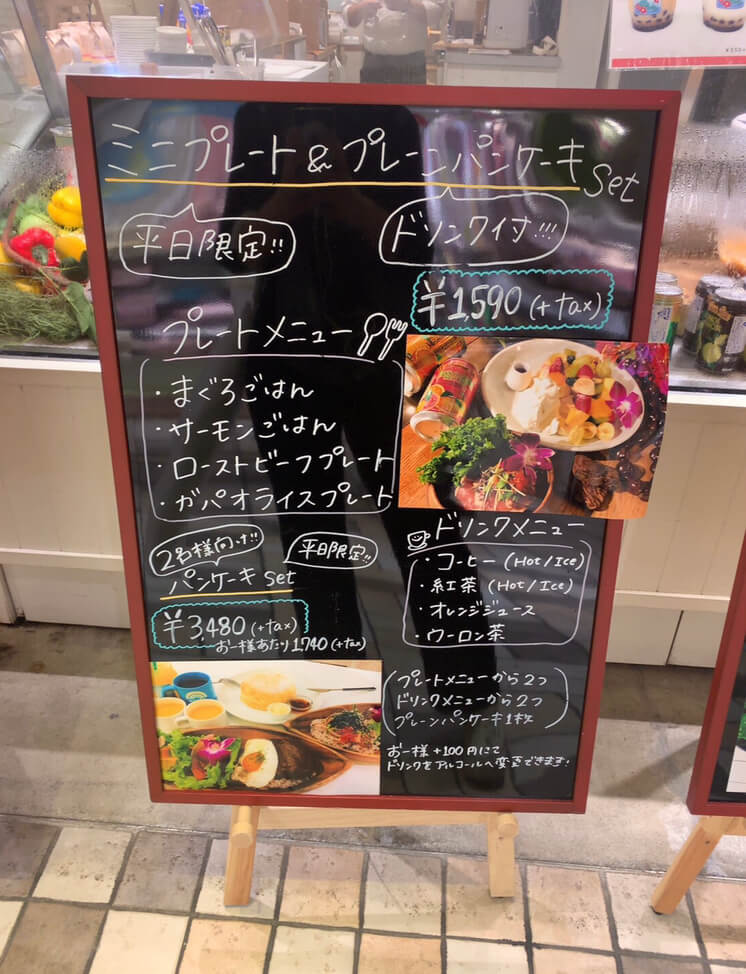 ミニプレート&プレーンパンケーキ set
平日限定!!
ドリンク付!!!
¥1,590 (+tax)
プレートメニュー
・まぐろごはん
・サーモンごはん
・ローストビーフプレート
・ガパオライスプレート
ドリンクメニュー
・コーヒー (Hot/Ice)
・紅茶 (Hot/Ice)
・オレンジジュース
・ウーロン茶
2名様向け!!
平日限定!!
パンケーキ set
¥3,480 (+tax)
お一様あたり1,740(+tax)
プレートメニューから2つ
ドリンクメニューから2つ
プレーンパンケーキ1枚
お一様+100円にて
ドリンクをアルコールへ変更できます!